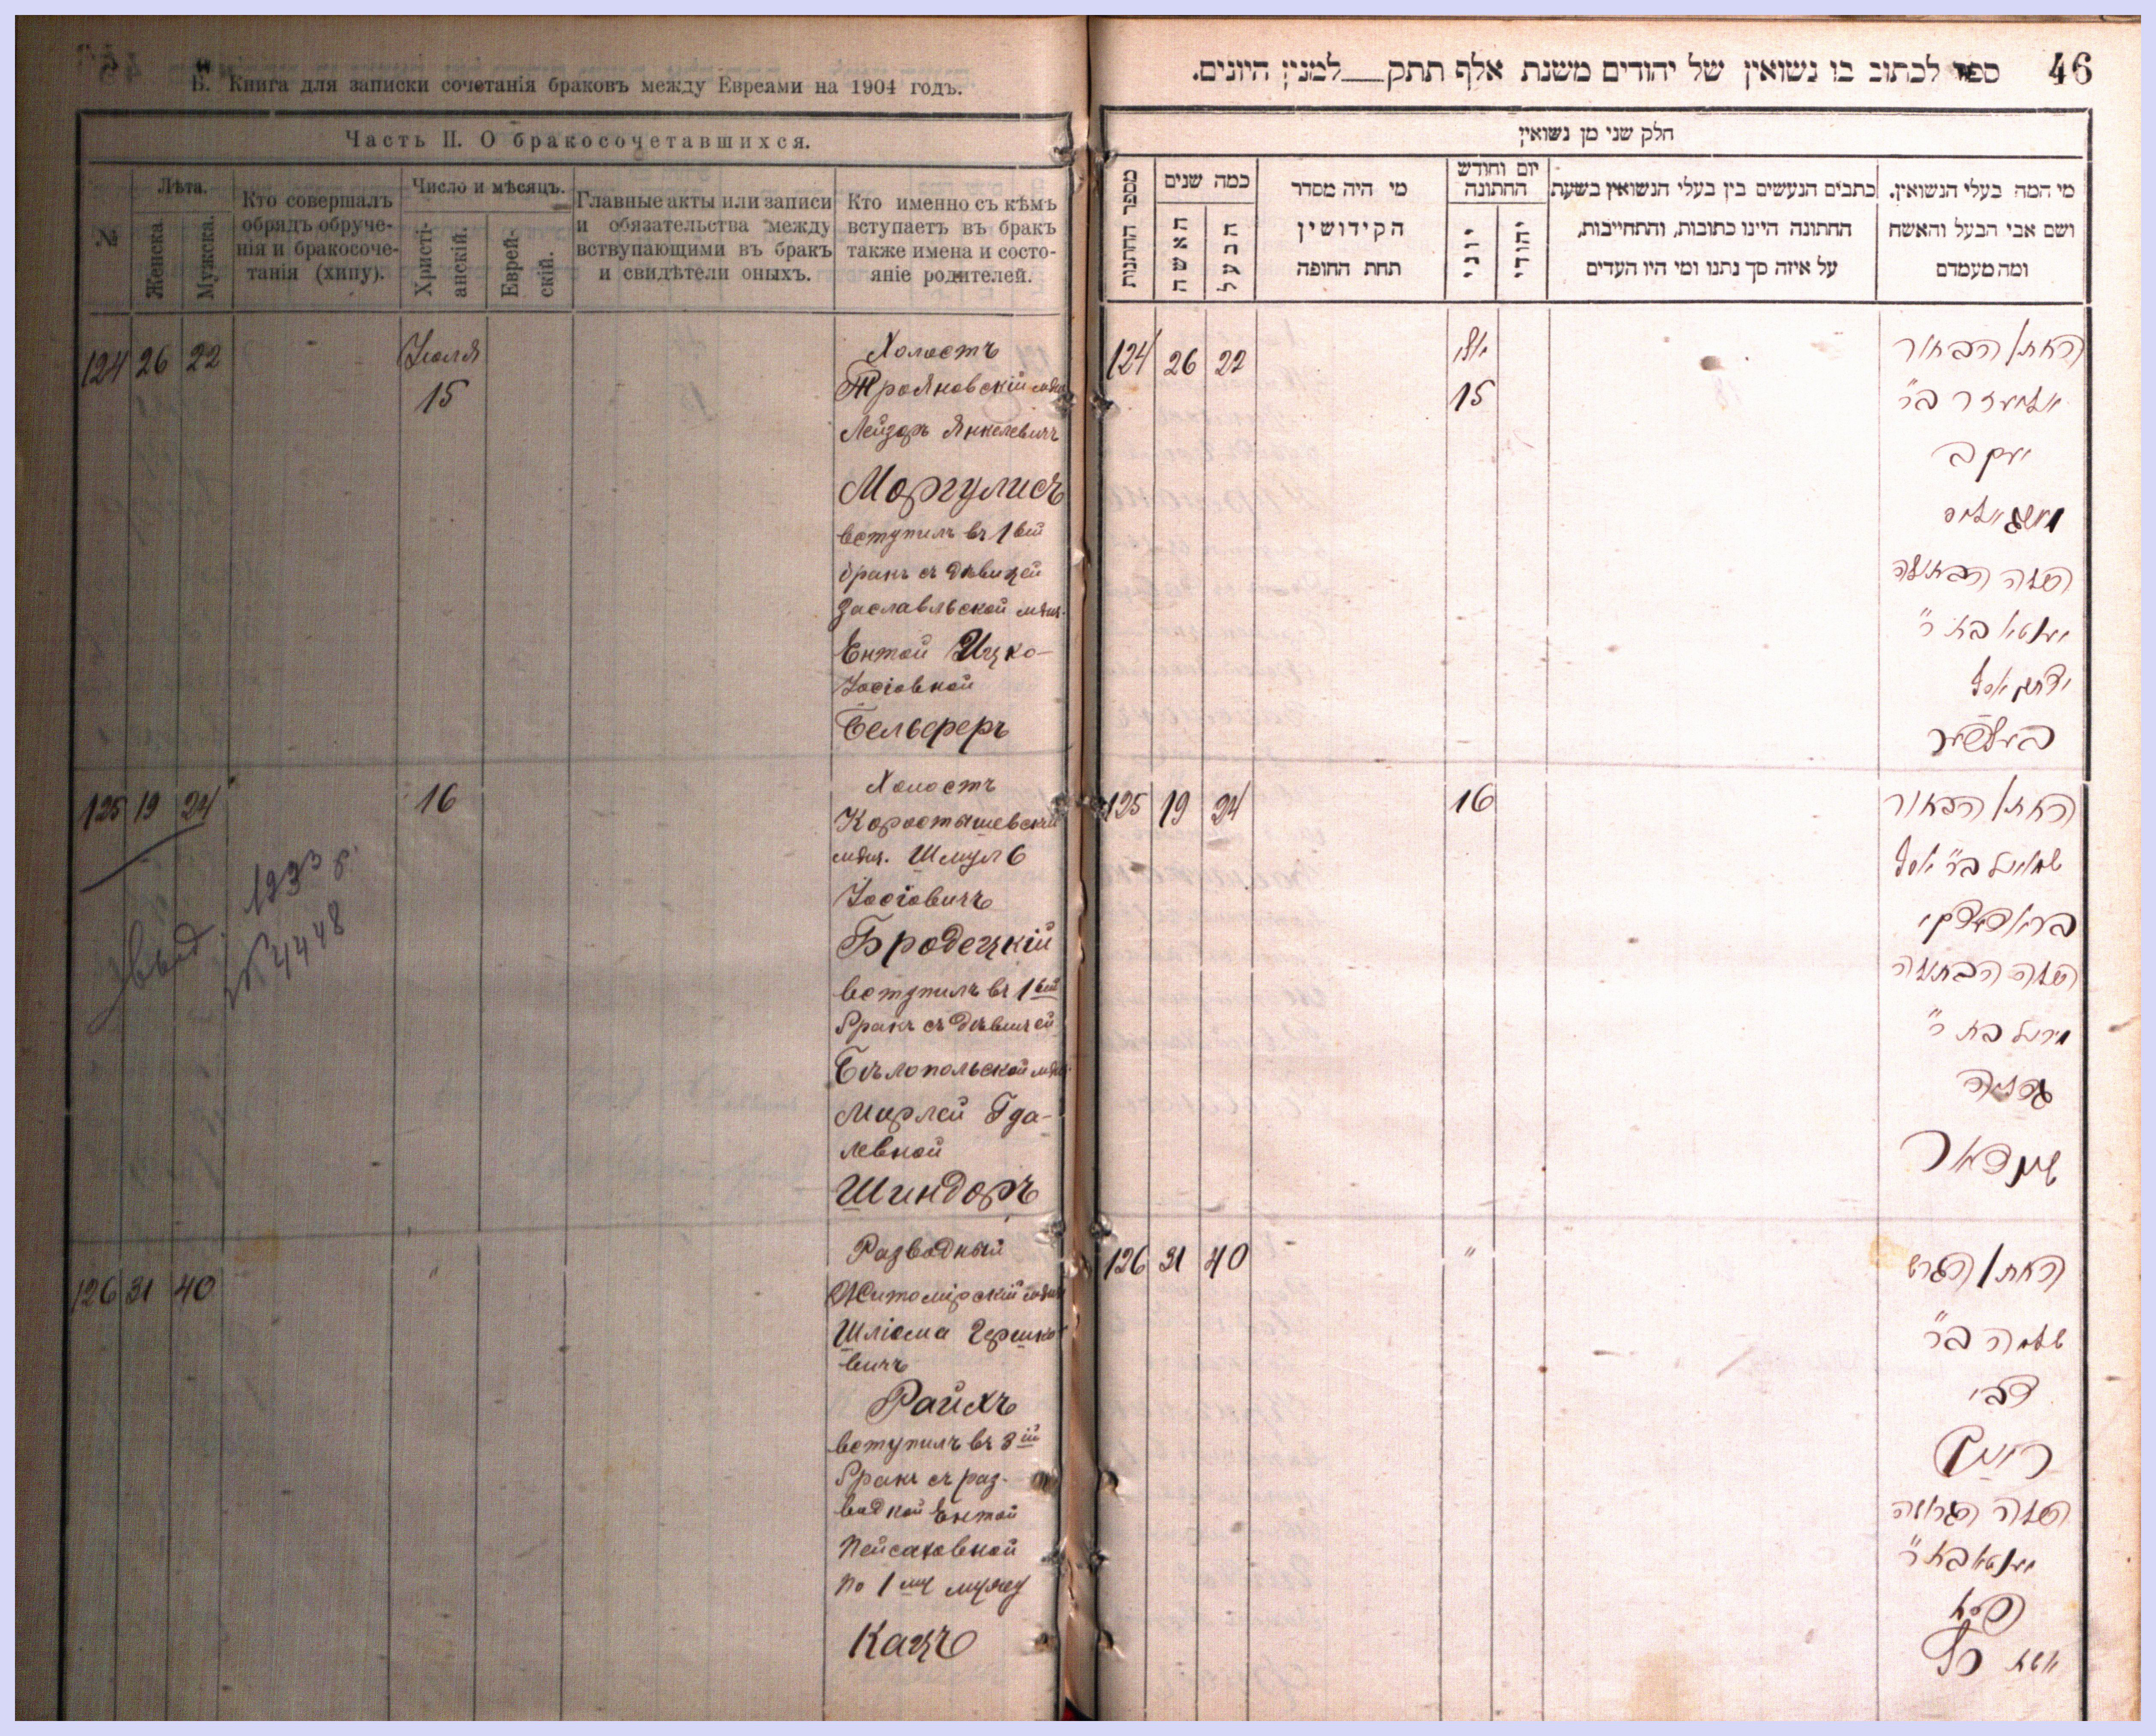 Б. Книга для записки сочетанія браковъ между Евреями на 1904 годъ.
Часть II. О бракосочетавшихся.
№
Лѣта.
Женска.
Мужска.
Кто совершалъ
обрядъ обруче-
нія и бракосоче-
танія (хипу).
Число и мѣсяцъ.
Христі-
анскій.
Еврей-
скій.
Главные акты или записи
и обязательства между
вступающими въ бракъ
и свидѣтели оныхъ.
Кто именно съ кѣмъ
вступаетъ въ бракъ
также имена и состо-
яніе родителей.
124 26 22
Іюля
15
Холостъ
Трояновскій мѣщ
Лейзоръ Янкелевичъ
Моргулисъ
вступилъ въ 1 вый
бракъ съ дѣвицей
Заславльской мѣщ.
Ентой Ицко-
Іосіовной
Бельферъ
125 19 24
16
Холостъ
Коростышевскій
мѣщ. Шмуль
Іосіовичъ
Бродецкій
вступилъ въ 1 вый
бракъ съ дѣвицей
Бѣлопольской мѣщ.
Мирлей Гда-
левной
Шиндоръ
выд
1933 г.
№ 4448
126 31 40
"
Разводный
Житомірскій мѣщ
Шліома Гершко-
вичъ
Райхъ
вступилъ въ 3 ій
бракъ съ раз-
водкой Ентой
Пейсаховной
по 1 му мужу
Кацъ
46
ספר לכתוב בו נשואין של יהודים משנת אלף תתק__למנין היונים.
חלק שני מן נשואין
מספר החתונות
כמה שנים
האשה
הבעל
מי היה מסדר
הקידושין
תחת החופה
יום וחודש
החתונה
יוני
יהודי
כתבים הנעשים בין בעלי הנשואין בשעת
החתונה היינו כתובות, והתחייבות,
על איזה סך נתנו ומי היו העדים
מי המה בעלי הנשואין.
ושם אבי הבעל והאשה
ומה מעמדם
124 26 22
יולי
15
החתן הבחור
אליעזר ב"ר
יעקב
מארגאליס
הכלה הבתולה
יענטא בת ר"
יצחק יוסף
בעלפער
125 19 24
16
החתן הבחור
שמואל ב"ר יוסף
בראדעצקי
הכלה הבתולה
מירל בת ר"
גדליה
שינדאר
126 31 40
"
החתן הגרוש
שלמה ב"ר
צבי
רייך
הכלה הגרושה
יענטא בת ר"
פסח
אשת כץ